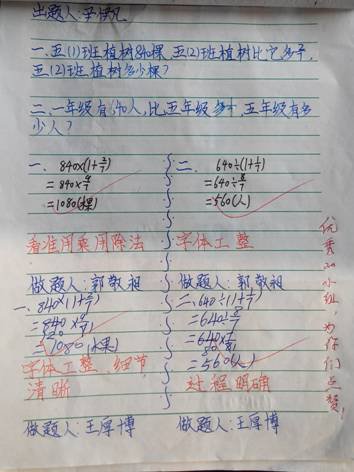 出题人:
一.五(1)班植树840棵,五(2)班植树比它多2/7,
五(2)班植树多少棵?
二.一年级有640人,比五年级多1/7,五年级有多
少人?
一. 840×(1+2/7)
=840×9/7
=1080(棵)
二. 640÷(1+1/7)
=640÷8/7
=560(人)
看准用乘用除法
字体工整
做题人:郭敬祖
做题人:郭敬祖
一.840×(1+2/7)
=840×9/7
=1080(棵)
二.640÷(1+1/7)
=640÷8/7
=640×7/8
=560(人)
字体工整,细节
清晰
过程明确
做题人:王厚博
做题人:王厚博
优秀的小组,为你们点赞!